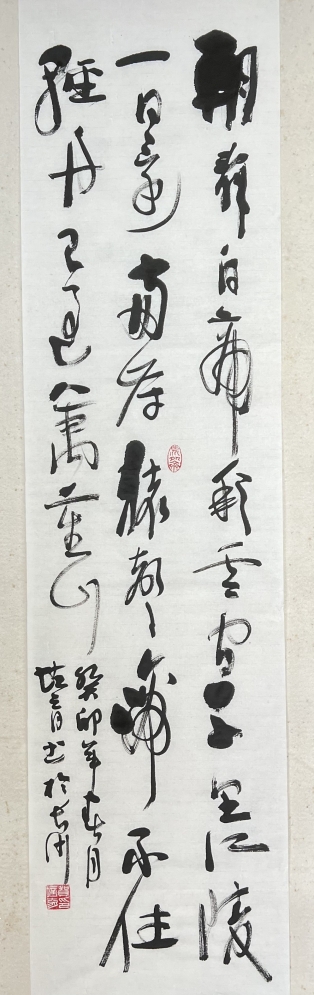 朝辭白帝彩雲間千里江陵
一日還兩岸猿聲啼不住
輕舟已過萬重山
癸卯年春月
书於